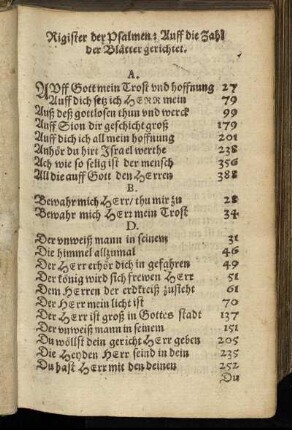 Rigister der Psalmen: Auff die Zahl
der Blätter gerichtet.
A.
AUff Gott mein Trost vnd hoffnung 27
Auff dich setz ich HERR mein 79
Auß deß gottlosen thun vnd werck 99
Auff Sion dir geschicht groß 179
Auff dich ich all mein hoffung 201
Anhör du hirt Israel werthe 238
Ach wie so selig ist der mensch 356
All die auff Gott den HErren 388
B.
Bewahr mich HErr/ thu mir zu 28
Bewahr mich HErr mein Trost 34
D.
Der vnweiß mann in seinem 31
Die himmel allzumal 46
Der HErr erhör dich in gefahren 49
Der König wird sich frewen HErr 51
Dem HErren der erdkreiß zusteht 61
Der HErr mein licht ist 70
Der HErr ist groß in Gottes stadt 137
Der vnweiß mann in seinem 151
Du wöllst dein gericht HErr geben 205
Die Heyden HErr seind in dein 235
Du hast HErr mit den deinen 252
Du